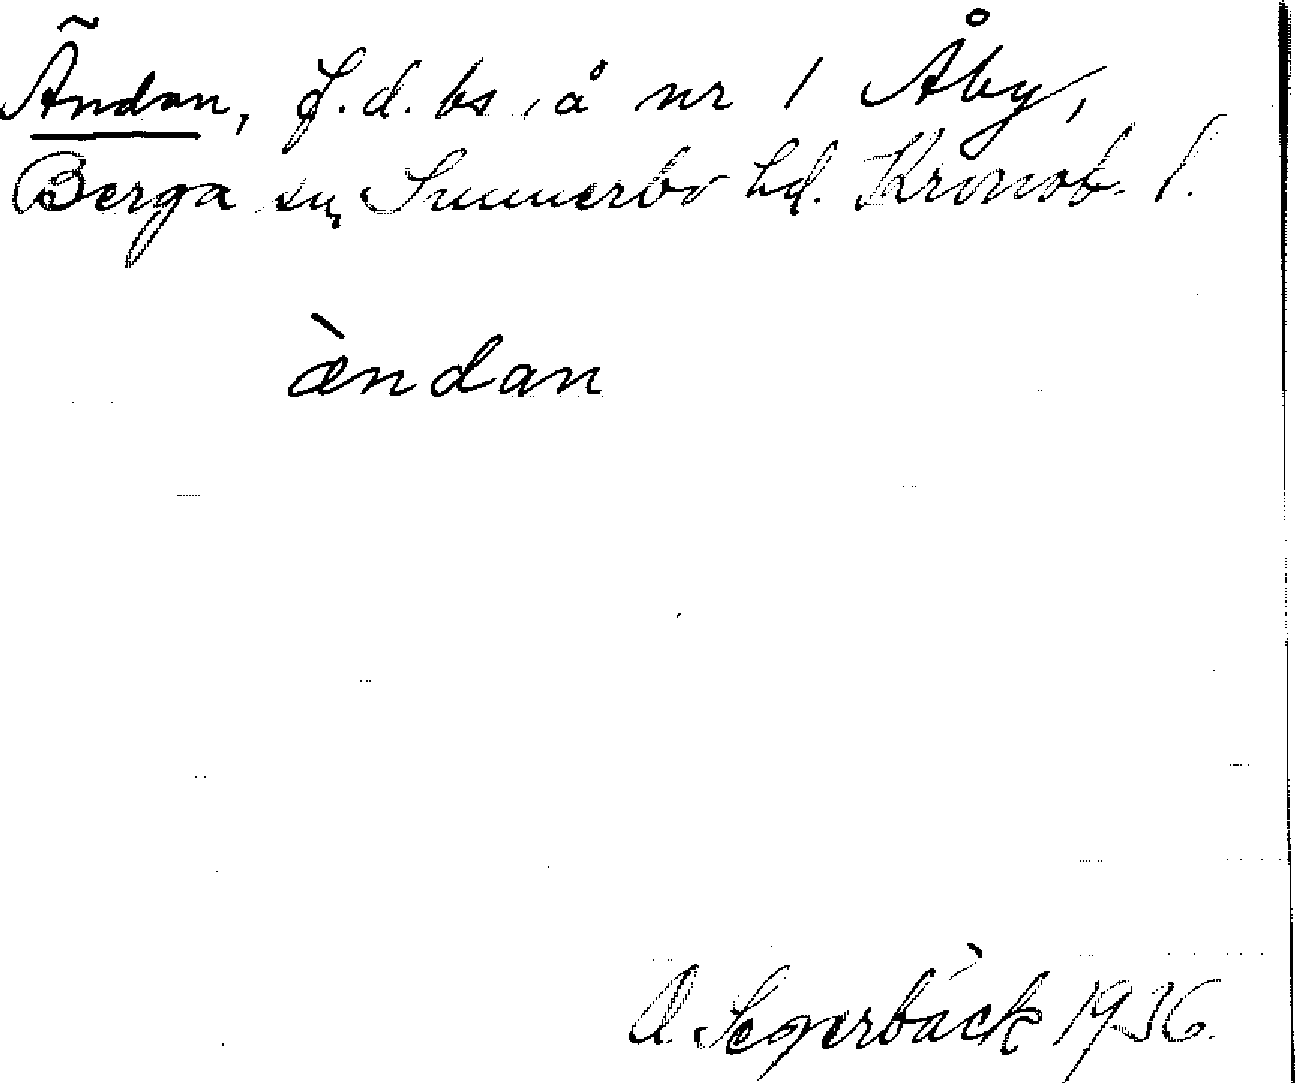 Ändan, f.d. bs å nr 1 Åby,
Berga sn, Sunnerbo hd. Kronob. l.
æ̀ndan
O. Segerbäck 1936.